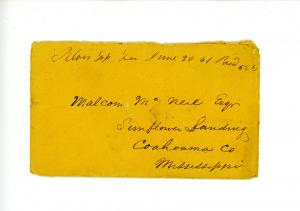 June 20 61 Paid
Malcom Mc Neil Esqr
Sunflower Landing
Coahoama Co
Mississippi